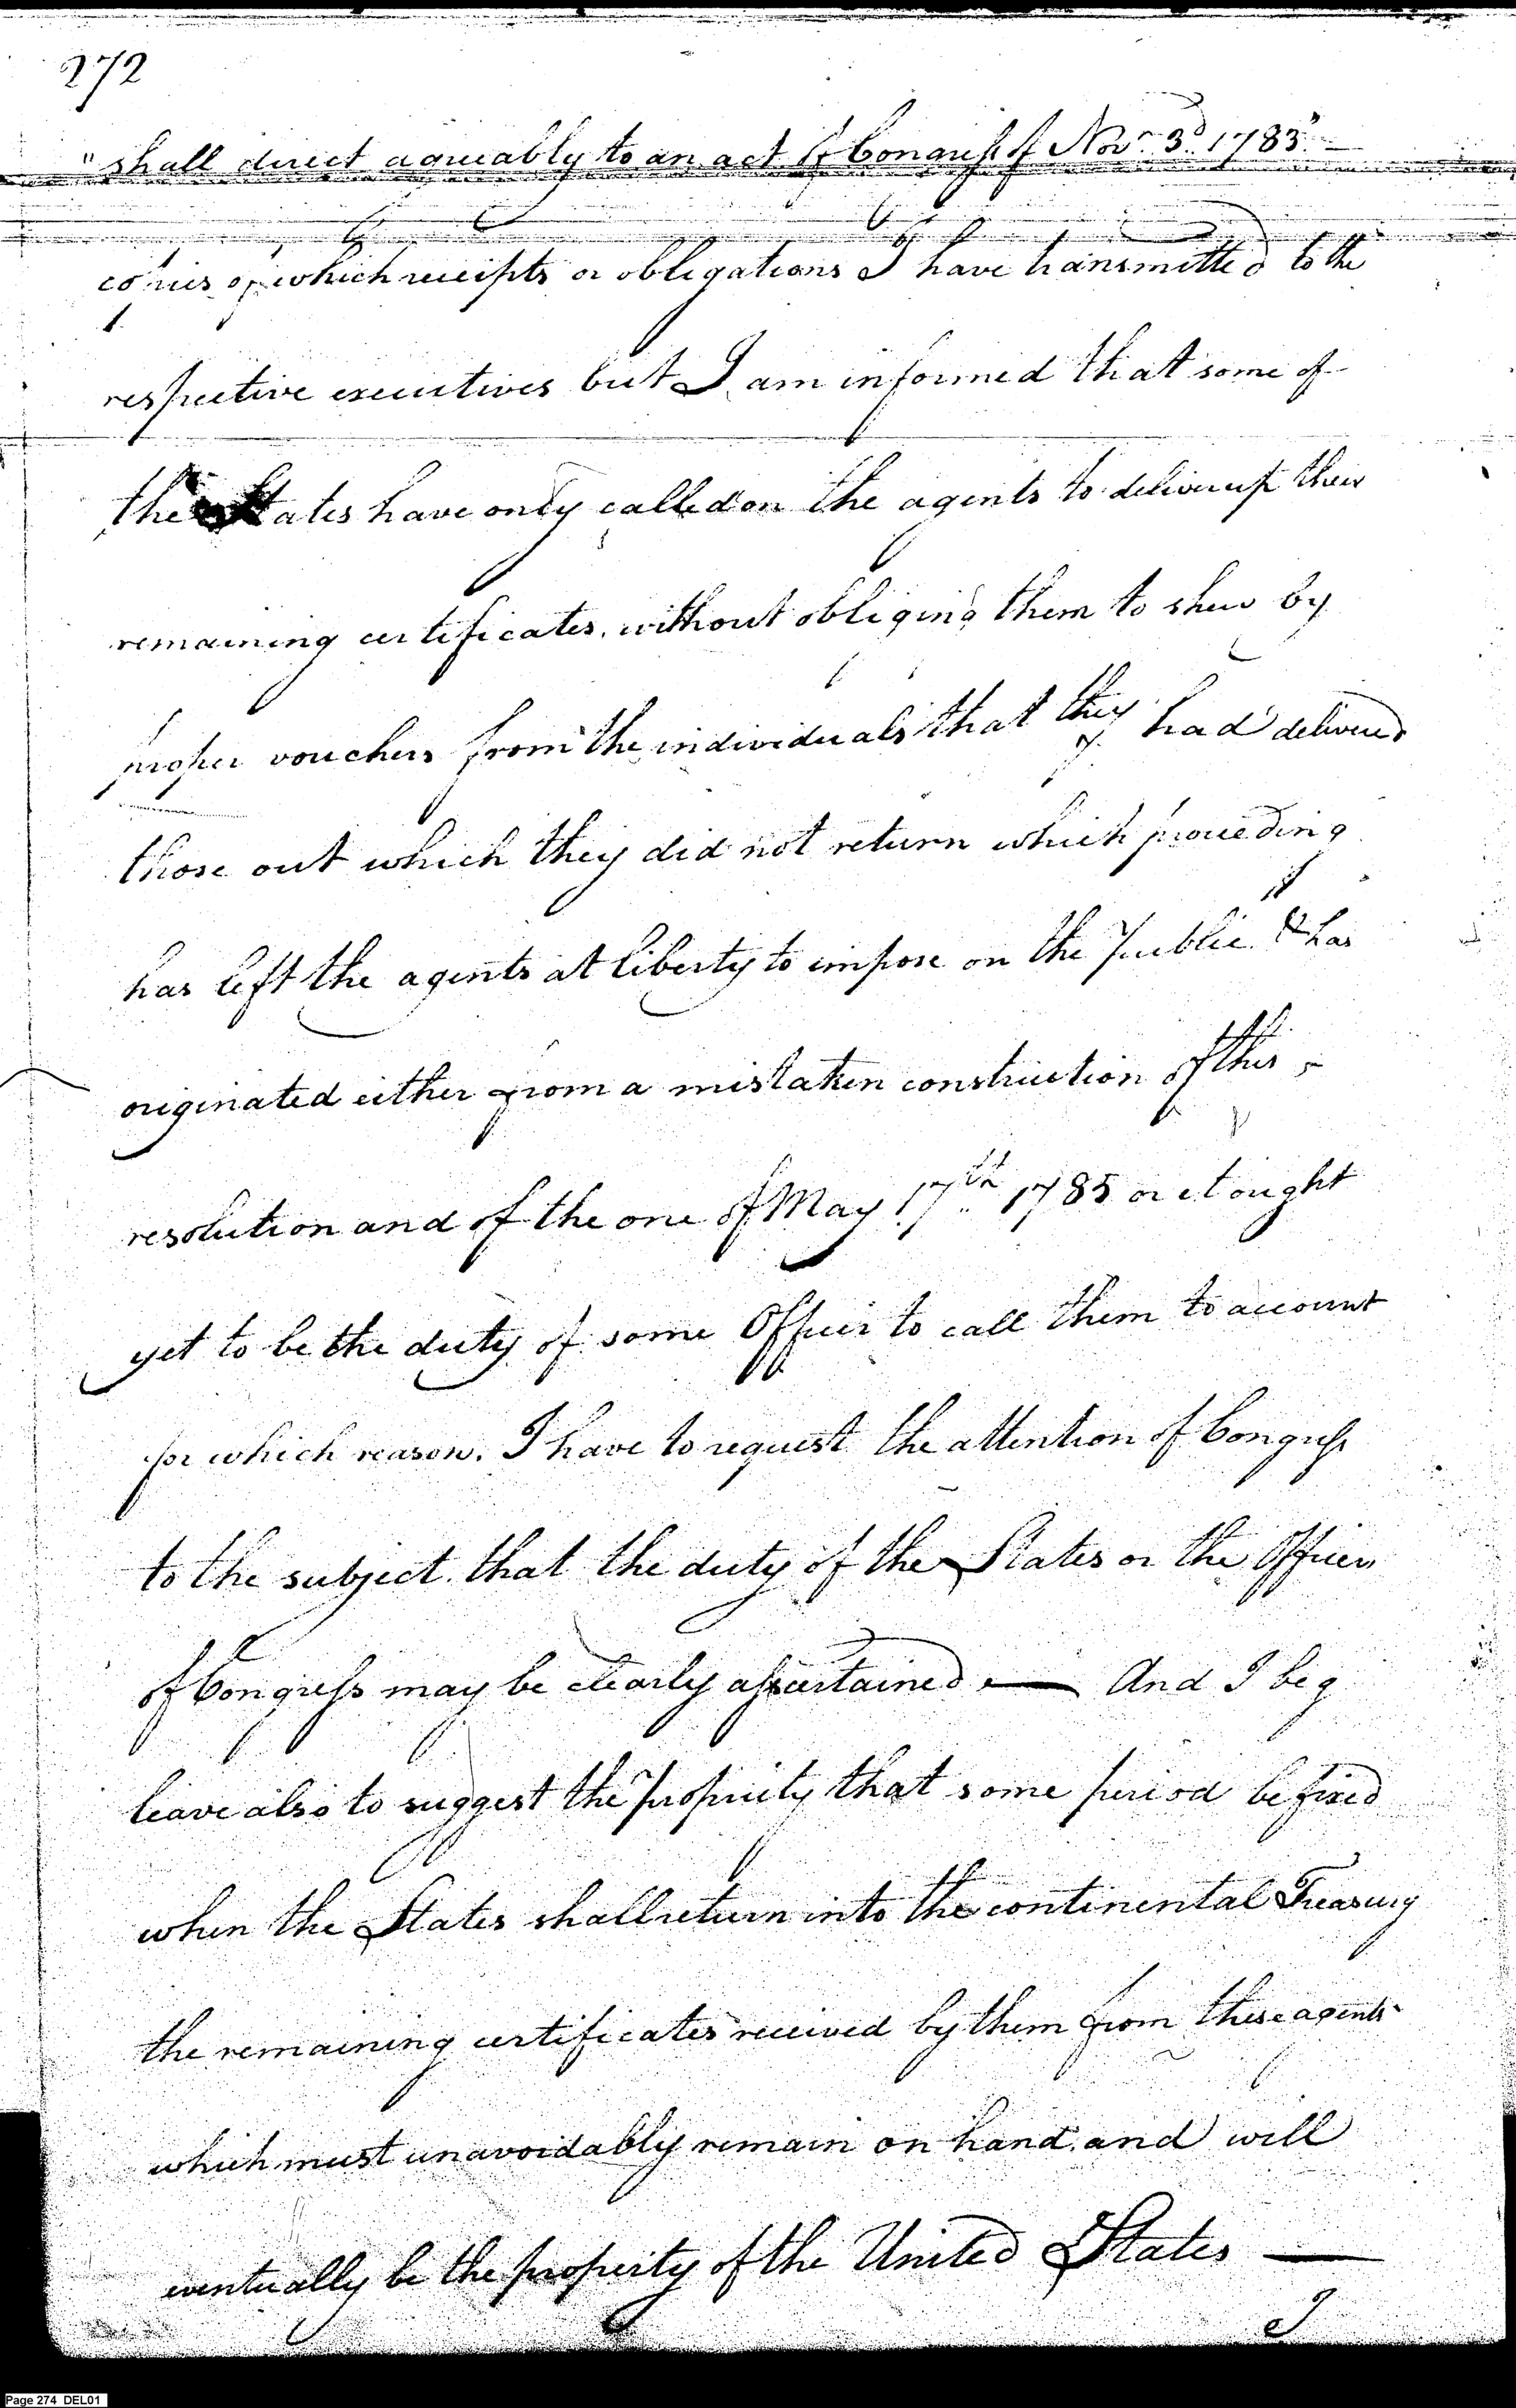 272
"shall direct agreeably to an act of Congress of Novr. 3d. 1783" —
copies of which receipts or obligations I have transmitted to the
respective executives but I am informed that some of
the States have only called on the agents to deliver up their
remaining certificates, without obliging them to shew by
proper vouchers from the individuals that they had delivered
those out which they did not return which proceeding
has left the agents at liberty to impose on the Public & has
originated either from a mistaken construction of this
resolution and of the one of May 17th. 1785 or it ought
yet to be the duty of some Officer to call them to account
for which reason. I have to request the attention of Congress
to the subject that the duty of the States or the Officers
of Congress may be clearly ascertained — And I beg
leave also to suggest the propriety that some period be fixed
when the States shall return into the continental Treasury
the remaining certificates received by them from these agents
which must unavoidably remain on hand and will
eventually be the property of the United States —
I
Page 274 DEL01